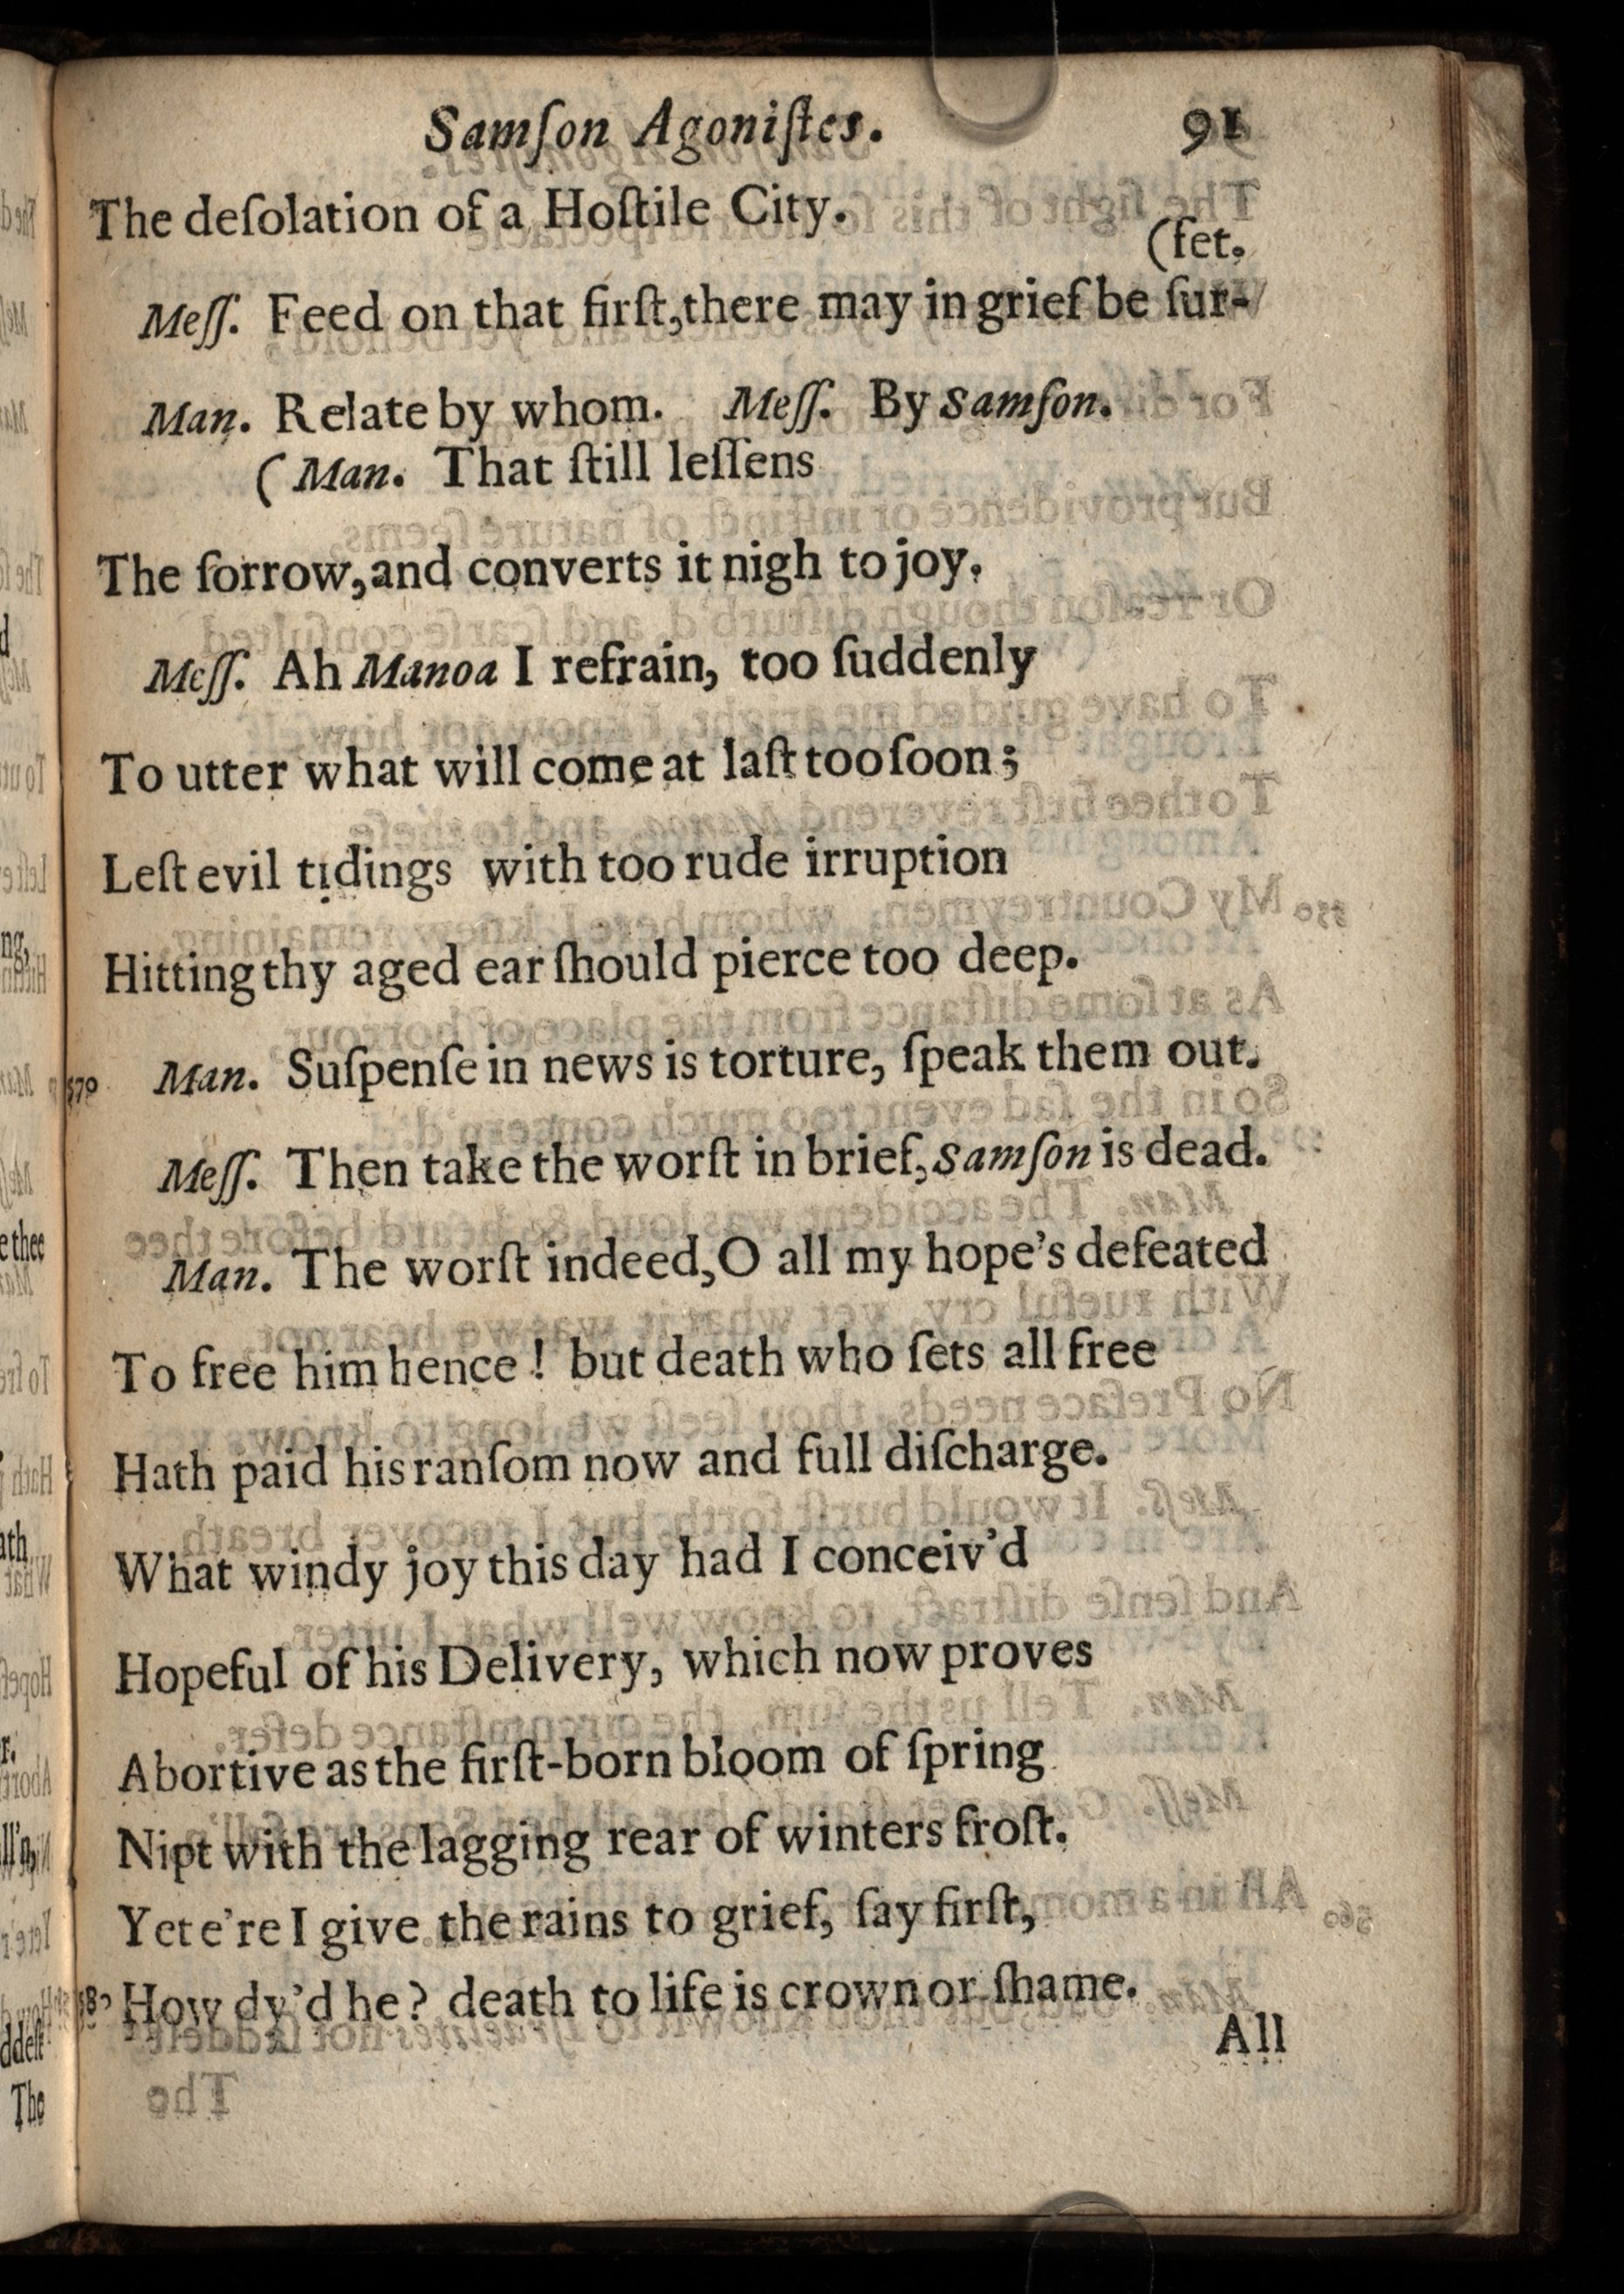 Samſon Agoniſtes. 91
The deſolation of a Hoſtile City.
(fet.
Meſſ. Feed on that firſt,there may in grief be ſur-
Man. Relate by whom. Meſſ. By Samſon.
(Man. That ſtill leſſens
The ſorrow,and converts it nigh to joy.
Meſſ. Ah Manoa I refrain, too ſuddenly
To utter what will come at laſt too ſoon;
Leſt evil tidings with too rude irruption
Hitting thy aged ear ſhould pierce too deep.
570 Man. Suſpenſe in news is torture, ſpeak them out.
Meſſ. Then take the worſt in brief, Samſon is dead.
Man. The worſt indeed,O all my hope's defeated
To free him hence! but death who ſets all free
Hath paid his ranſom now and full diſcharge.
What windy joy this day had I conceiv'd
Hopeful of his Delivery, which now proves
Abortive as the firſt-born bloom of ſpring
Nipt with the lagging rear of winters froſt.
Yet e're I give the rains to grief, ſay firſt,
How dy'd he? death to life is crown or ſhame.
All